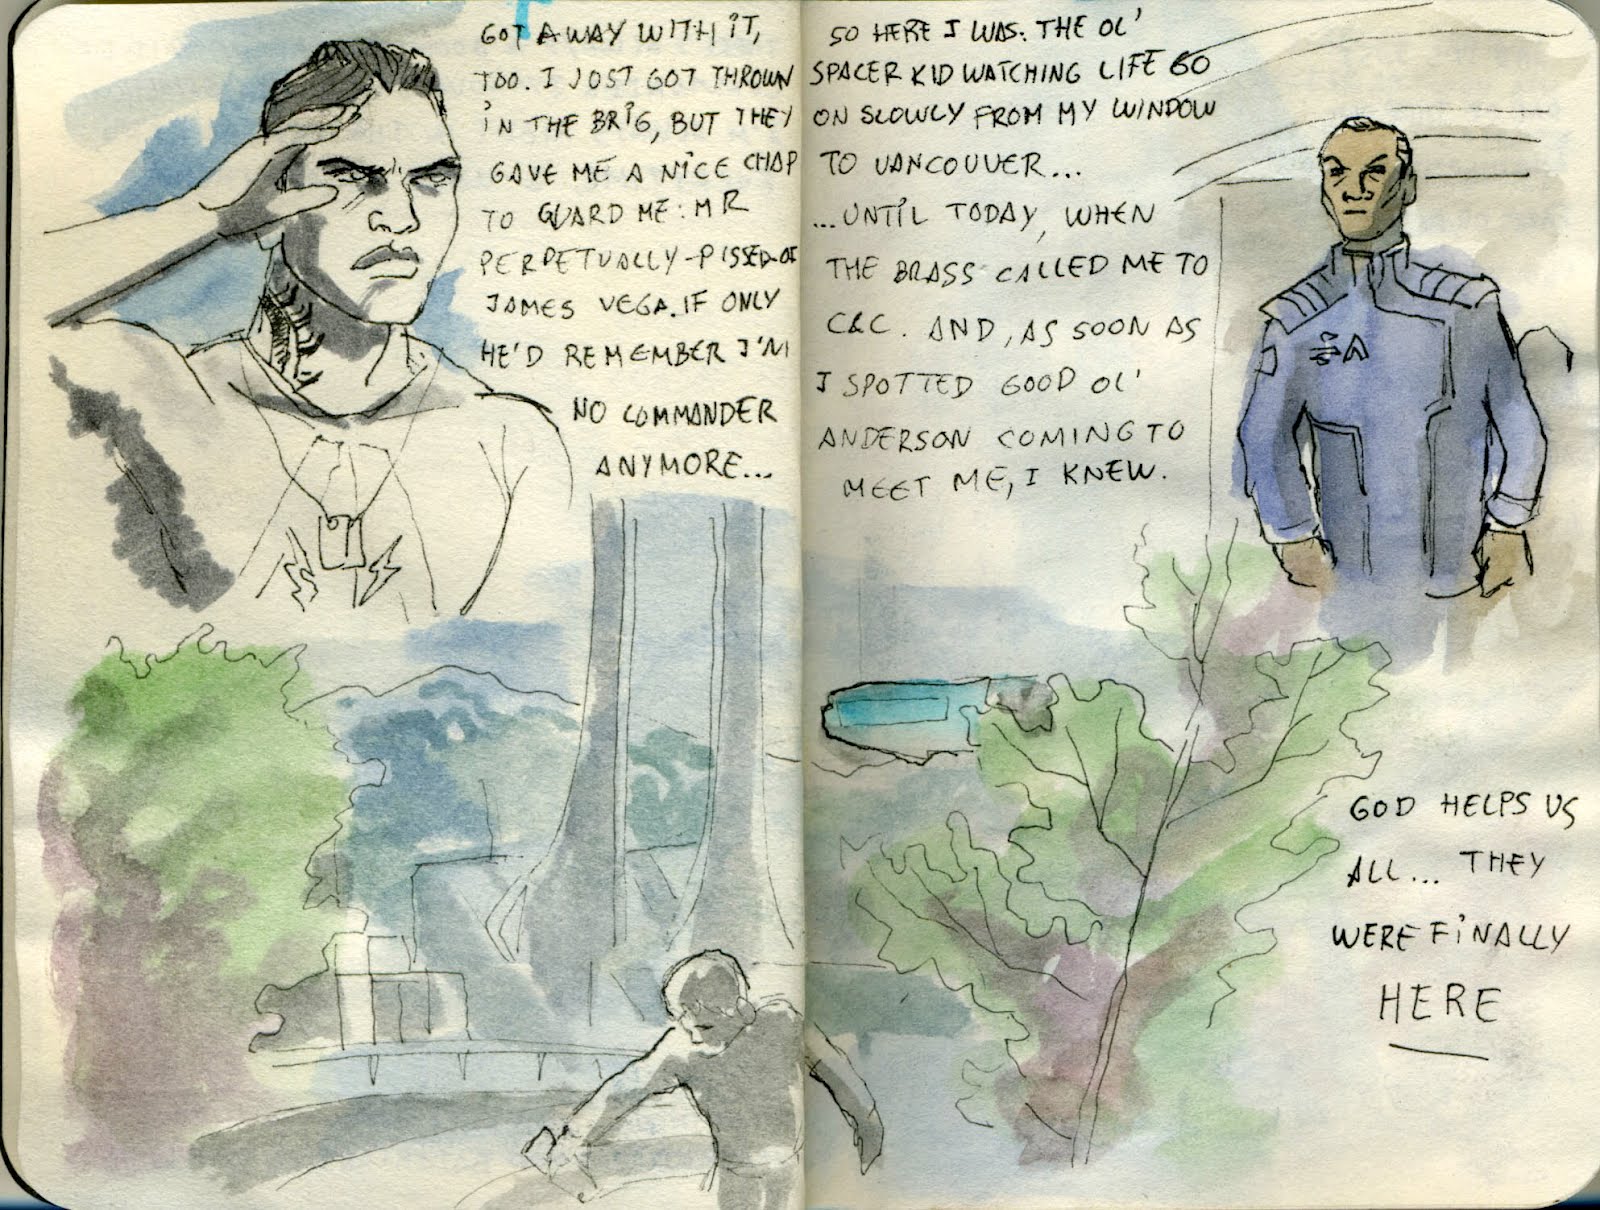 GOT AWAY WITH IT,
TOO. I JUST GOT THROWN
IN THE BRIG, BUT THEY
GAVE ME A NICE CHAP
TO GUARD ME: MR
PERPETUALLY-PISSED-OF
JAMES VEGA. IF ONLY
HE'D REMEMBER I'M
NO COMMANDER
ANYMORE...
SO HERE I WAS: THE OL'
SPACER KID WATCHING LIFE GO
ON SLOWLY FROM MY WINDOW
TO VANCOUVER...
...UNTIL TODAY, WHEN
THE BRASS CALLED ME TO
C&C. AND, AS SOON AS
I SPOTTED GOOD OL'
ANDERSON COMING TO
MEET ME, I KNEW.
GOD HELPS US
ALL... THEY
WERE FINALLY
HERE